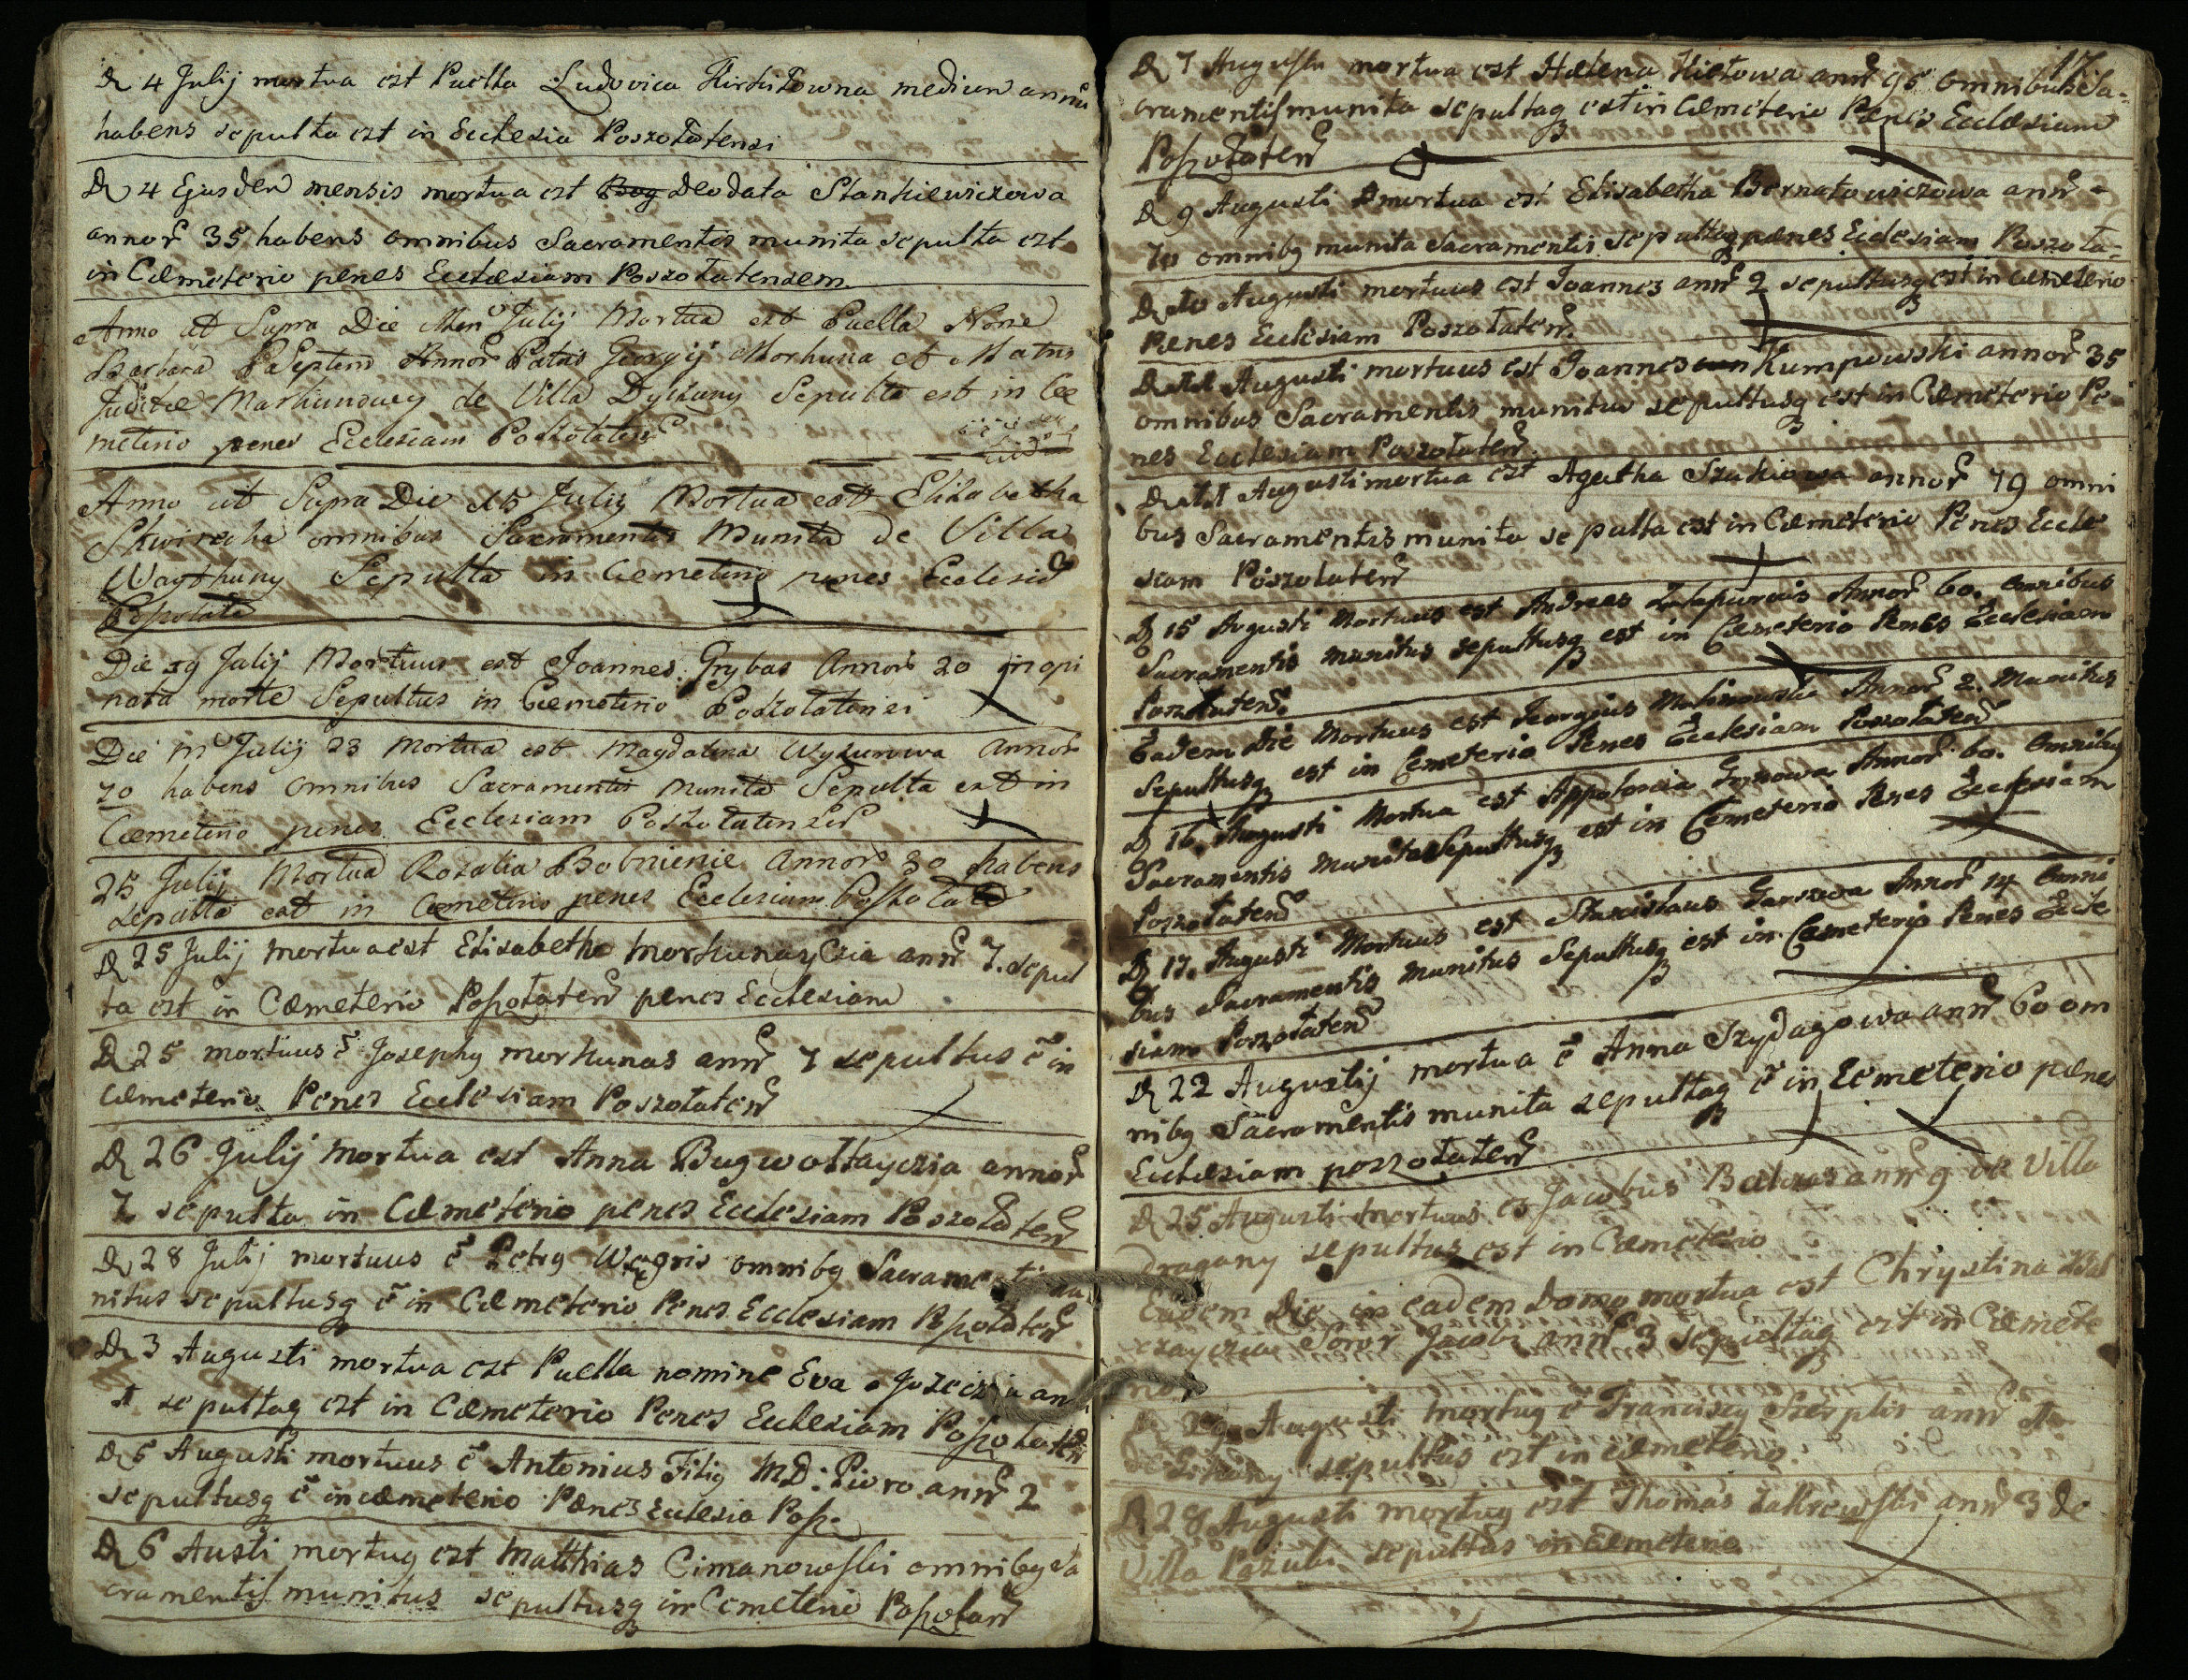 D 4 Julij mortua est Puella Ludovica medium annū
habens sepulta est in Ecclesia Poszołatensi
D 4 Ejusdem mensis mortua est Deodata Stankiewiczowa
annor 35 habens omnibus Sacramentis munita sepulta est
in Cæmeterio penes Ecclesiam Poszołatensem
Anno ut Supra Die Julij Mortua est Puella Nōne
Barbara Septem Annor Patris Georgij Morkuna et Matris
Juditæ Markunowey de Villa Dyrkuny Sepulta est in Cæ
meterio penes Ecclesiam Poszołaten
Anno ut Supra Die 15 Julij Mortua est Elizabetha
Skwirecka omnibus Sacramentis Munita de Villa
Sepulta in Cæmeterio penes Ecclesia
Poszołate
Die 19 Julij Mortuus est Joannes Grybas Annor 20 inopi
nata morte Sepultus in Cæmeterio Poszołatensi
Die M Julij 23 Mortua est Magdalena Wyzurowa Annor
70 habens omnibus Sacramentis Munita Sepulta est in
Cæmeterio penes Ecclesiam Poszołatensem
25 Julij Mortua Rozalia Bobnienie Annor 30 habens
Sepulta est in Cæmeterio penes Ecclesiam Poszołate
D 25 Julij mortua est Elisabetha Morkunayczia ann 7. sepul
ta est in Cæmeterio Poszołaten penes Ecclesiam
D 25 mortuus ē Josephg morkunas ann 7 sepultus ē in
Cæmeterio Penes Ecclesiam Poszołaten
D 26 Julij mortua est Anna Bugwołtayczia annor
7 sepulta in Cæmeterio penes Ecclesiam Poszołaten
D 28 Julij mortuus ē Petrg Węgris omnibg Sacramentis mu
nitus sepultusq ē in Cæmeterio Penes Ecclesiam Poszołaten
D 3 Augusti mortua est Puella nomine Eva an
1 sepultaq est in Cæmeterio Penes Ecclesiam Poszołaten
D 5 Augusti mortuus ē Antonius Filig MD: Pioro ann 2
sepultusq ē in cæmeterio Pænes Ecclesia Posz.
D 6 Austi mortug est Matthias Cimanowski omnibg Sa
cramentis munitus sepultusq in Cemeterio Poszołan
17
D 7 Augusti mortua est Hælena Kietowa ann 95 omnibus Sa=
cramentis munita sepultaq est in Cæmeterio Pænes Ecclesiam
Poszołaten
D 9 Augusti mortua est Elisabetha Bernatowiczowa ann
70 omnibg munita Sacramentis sepultaq pænes Ecclesiam Poszoła=
D 10 Augusti mortuus est Joannes ann 2 sepultusq est in cæmeterio
Penes Ecclesiam Poszołaten.
D 11 Augusti mortuus est Joannes Kumpowski annor 35
omnibus Sacramentis munitus sepultusq est in Cæmeterio Pe=
nes Ecclesiam Poszołaten.
D 11 Augusti mortua est Agatha Szukiowa annor 79 omni
bus Sacramentis munita sepulta est in Cæmeterio Penes Eccle
siam Poszołaten
D 15 Augusti Mortuus est Andreas Annor 60. omnibus
Sacramentis Munitus Sepultusq est in Cæmeterio Penes Ecclesiam
Poszołaten.
Eadem Die Mortuus est Georgius Malinowski Annor 2. Munitus
Sepultusq est in Cemeterio Penes Ecclesiam Poszołaten
D 16 Augusti Mortua est Appolonia Annor 60. omnibg
Sacramentis Munita Sepultusq est in Cemeterio Penes Ecclesiam
Poszołaten
D 17. Augusti Mortuus est Stanislaus Annor 14 Omni
bus Sacramentis Munitus Sepultusq est in Cæmeterio Penes Eccle
siam Poszołaten
D 22 Augustij mortua ē Anna Szydagowa ann 60 om
nibg Sacramentis munita sepultaq ē in Cemeterio pænes
Ecclesiam poszołaten
D 25 Augusti mortuus es Jacobus Balczas ann 9 de Villa
Dragany sepultus est in Cæmeterio
Eadem Die in eadem Domo mortua est Chrystina Bal
czayczia Soror Jacobi ann 3 sepultaq est in Cæmete
rio
D 29 Augusti mortug ē Franciscg Szerplis ann
sepultus est in cæmeterio.
D 28 Augusti mortug est Thomas Zakrewski ann 3 de
Villa sepultus in cæmeterio